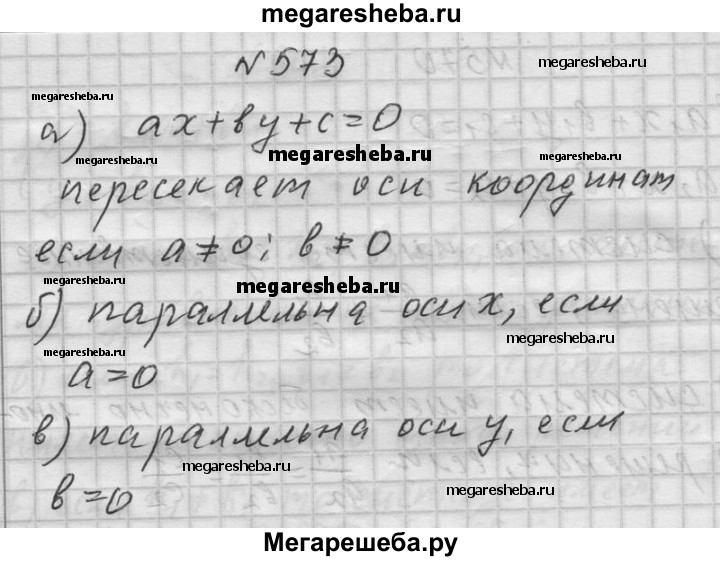 megaresheba.ru
№573
megaresheba.ru
megaresheba.ru
а) ax+вy+c=0
megaresheba.ru
megaresheba.ru
пересекает оси координат
если a≠0; в≠0
megaresheba.ru
megaresheba.ru
б) параллельна оси x, если
megaresheba.ru
megaresheba.ru
a=0
в) параллельна оси y, если
megaresheba.ru
megaresheba.ru
в=0
Мегарешеба.ру